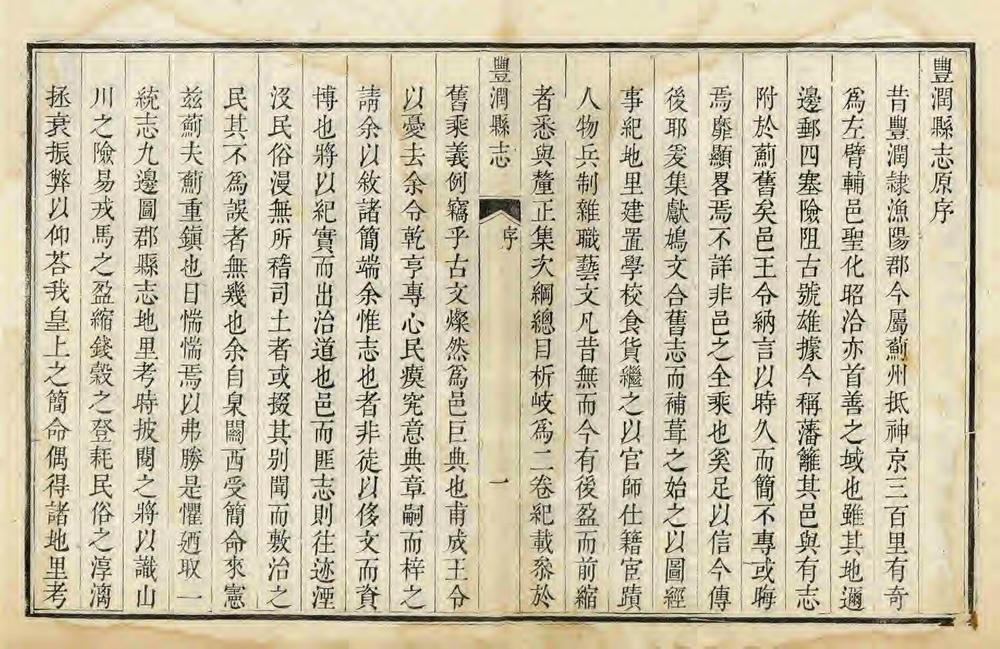 豐潤縣志原序
昔豐潤隷漁陽郡今屬薊州抵神京三百里有奇
爲左臂輔邑聖化昭洽亦首善之域也雖其地邇
邊鄣四塞險阻古號雄據今稱藩籬其邑與有志
附於薊舊矣邑王令納言以時久而簡不專或晦
焉靡顯畧焉不詳非邑之全乘也奚足以信今傳
後耶爰集獻鳩文合舊志而補葺之始之以圖經
事紀地里建置學校食貨繼之以官師仕籍宦蹟
人物兵制雜職藝文凡昔無而今有後盈而前縮
者悉與釐正集次綱總目析岐爲二卷紀載叅於
豐潤縣志
序
一
舊乘義例竊乎古文燦然爲邑巨典也甫成王令
以憂去余令乾亨專心民瘼究意典章嗣而梓之
請余以敘諸簡端余惟志也者非徒以侈文而資
博也將以紀實而出治道也邑而匪志則往迹湮
沒民俗漫無所稽司土者或掇其别聞而敷治之
民其不爲誤者無幾也余自臬關西受簡命來憲
兹薊夫薊重鎮也日惴惴焉以弗勝是懼廼取一
統志九邊圖郡縣志地里考時披閱之將以識山
川之險易戎馬之盈縮錢穀之登耗民俗之淳漓
拯衰振弊以仰荅我皇上之簡命偶得諸地里考